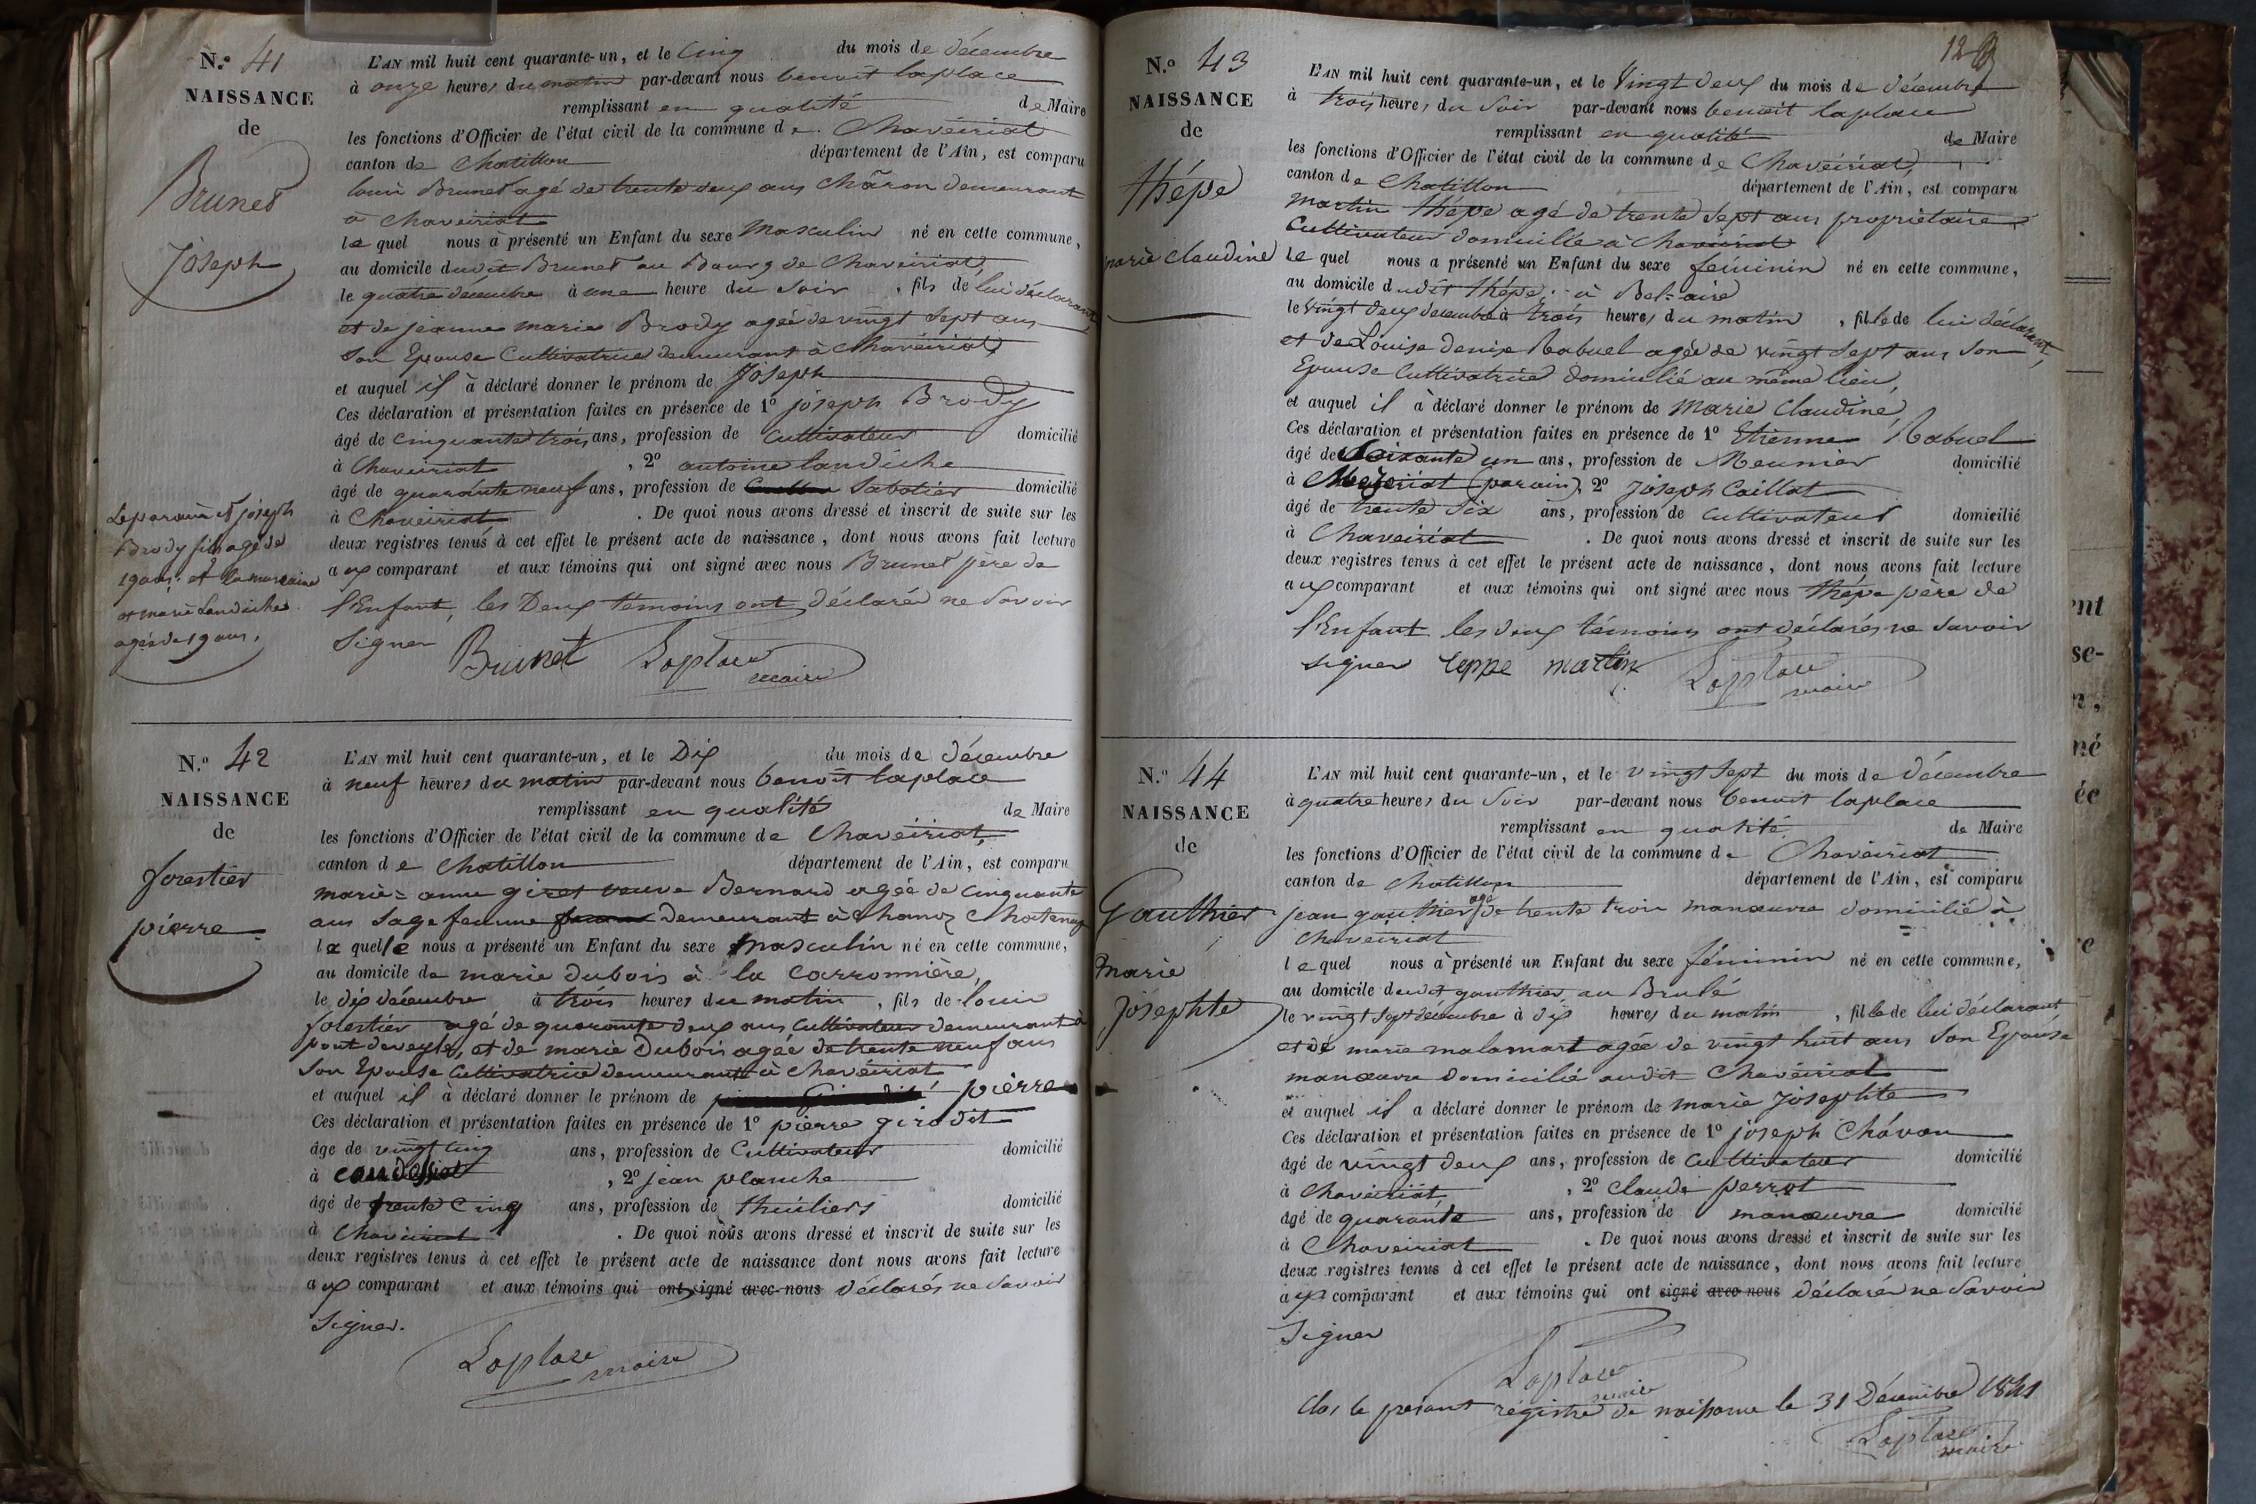 N.° 41
NAISSANCE
de
Brunet
Joseph
L'AN mil huit cent quarante-un, et le Cinq du mois de décembre
à onze heures du matin par-devant nous benoit laplace
remplissant en qualité de Maire
les fonctions d'Officier de l'état civil de la commune de Chaveiriat
canton de Chatillon département de l'Ain, est comparu
louis Brunet agé de trente deux ans Charon demeurant
à Chaveiriat
le quel nous à présenté un Enfant du sexe Masculin né en cette commune,
au domicile dudit Brunet au Bourg de Chaveiriat,
le quatre décembre à une heure du Soir, fils de lui déclarant
et de jeanne marie Brody agée de vingt Sept ans
Son Epouse Cultivatrice demeurant à Chaveiriat,
et auquel il à déclaré donner le prénom de Joseph
Ces déclaration et présentation faites en présence de 1° joseph Brody
âgé de cinquante trois ans, profession de Cultivateur domicilié
à Chaveiriat, 2° antoine landiche
âgé de quarante neuf ans, profession de Sabotier domicilié
à Chaveiriat. De quoi nous avons dressé et inscrit de suite sur les
deux registres tenus à cet effet le présent acte de naissance, dont nous avons fait lecture
aux comparant et aux témoins qui ont signé avec nous Brunet père de
l'Enfant, les Deux témoins ont déclarés ne Savoir
Signer Brunet Laplace
maire
Le parain est joseph
Brody fils agé de
19 ans. et la marraine
et marie Landiche
agée de 19 ans,
N.° 42
NAISSANCE
de
forestier
pierre
L'AN mil huit cent quarante-un, et le Dix du mois de décembre
à neuf heures du matin par-devant nous benoit laplace
remplissant en qualités de Maire
les fonctions d'Officier de l'état civil de la commune de Chaveiriat,
canton de Chatillon département de l'Ain, est comparu
marie-anne giret veuve Bernard agée de Cinquante
ans Sage femme demeurant à Chanoz Chatenay
la quelle nous a présenté un Enfant du sexe Masculin né en cette commune,
au domicile de marie Dubois à la Carronnière,
le dix décembre à trois heures du matin, fils de louis
forestier agé de quarante deux ans Cultivateur demeurant à
pont de veyle, et de marie Dubois agée de trente neuf ans
Son Epouse Cultivatrice demeurant à Chaveiriat
et auquel il à déclaré donner le prénom de pierre
Ces déclaration et présentation faites en présence de 1° pierre girodit
âge de vingt Cinq ans, profession de Cultivateur domicilié
à condessiat, 2° jean planche
âgé de trente Cinq ans, profession de thuiliers domicilié
à Chaveiriat. De quoi nous avons dressé et inscrit de suite sur les
deux registres tenus à cet effet le présent acte de naissance dont nous avons fait lecture
aux comparant et aux témoins qui ont signé avec nous déclarés ne Savoir
Signer.
Laplace maire
N.° 43
NAISSANCE
de
thépe
marie claudine
12
L'AN mil huit cent quarante-un, et le Vingt Deux du mois de décembre
à trois heures du Soir par-devant nous benoit laplace
remplissant en qualité de Maire
les fonctions d'Officier de l'état civil de la commune de Chaveiriat,
canton de Chatillon département de l'Ain, est comparu
martin thépe agé de trente Sept ans propriétaire
Cultivateur domicillé à Chaveiriat
le quel nous a présenté un Enfant du sexe féminin né en cette commune,
au domicile dudit thépe à Bel-aire
le Vingt Deux decembre à trois heures du matin, fille de lui déclarant,
et de Louise denise Rabuel agée de vingt Sept ans Son
Epouse Cultivatrice domicilié au même lieu,
et auquel il à déclaré donner le prénom de Marie Claudine
Ces déclaration et présentation faites en présence de 1° Etienne Rabuel
âgé de Soixante un ans, profession de Meunier domicilié
à Mezeriat (parain), 2° Joseph Caillat
âgé de trente Six ans, profession de Cultivateur domicilié
à Chaveiriat. De quoi nous avons dressé et inscrit de suite sur les
deux registres tenus à cet effet le présent acte de naissance, dont nous avons fait lecture
aux comparant et aux témoins qui ont signé avec nous thépe père de
l'Enfant les deux témoins ont déclarés ne Savoir
Signer teppe martin Laplace
maire
N.° 44
NAISSANCE
de
Gauthier
marie
Josephte
L'AN mil huit cent quarante-un, et le vingt Sept du mois de décembre
à quatre heures du Soir par-devant nous benoit laplace
remplissant en qualité de Maire
les fonctions d'Officier de l'état civil de la commune de Chaveiriat
canton de Chatillon département de l'Ain, est comparu
jean gauthier agé de trente trois manœuvre domicilié à
Chaveiriat
le quel nous à présenté un Enfant du sexe féminin né en cette commune,
au domicile dudit gauthier au Brulé
le vingt Sept décembre à dix heures du matin, fille de lui déclarant
et de marie malamart agée de vingt huit ans Son Epouse
manœuvre domicilié audit Chaveiriat
et auquel il a déclaré donner le prénom de marie Josephte
Ces déclaration et présentation faites en présence de 1° joseph Chavan
âgé de vingt deux ans, profession de Cultivateur domicilié
à Chaveiriat, 2° Claude perrot
âgé de quarante ans, profession de manœuvre domicilié
à Chaveiriat. De quoi nous avons dressé et inscrit de suite sur les
deux registres tenus à cet effet le présent acte de naissance, dont nous avons fait lecture
aux comparant et aux témoins qui ont signé avec nous déclarés ne Savoir
Signer
Laplace
maire
Clos le présent régistre de naissance le 31 Décembre 1841
Laplace
maire